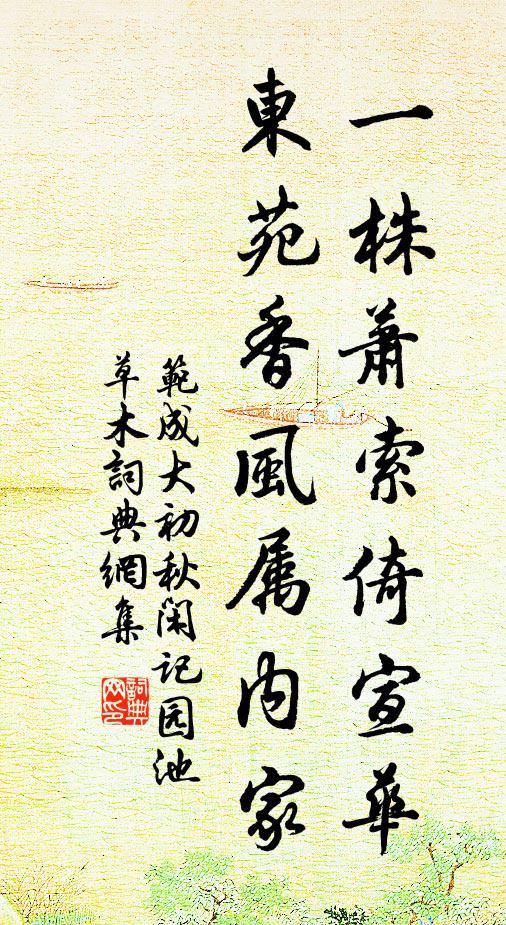 一株蕭索倚宣華
東苑香風属内家
範成大初秋閑記园池
草木詞典網集
詞典网印